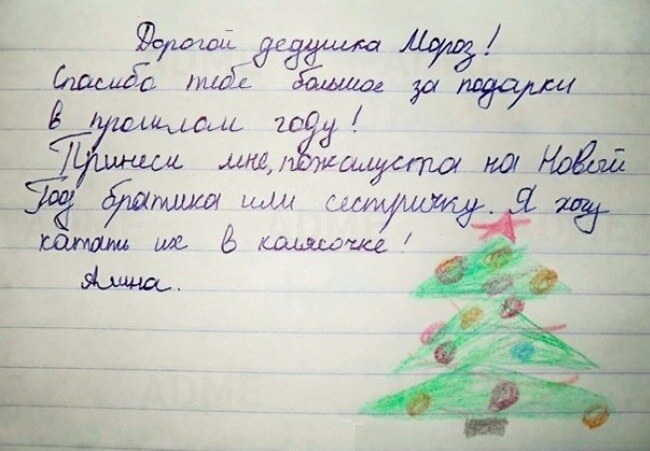 Дорогой дедушка Мороз!
Спасибо тебе большое за подарки
в прошлом году!
Принеси мне, пожалуста на Новый
Год братика или сестричку. Я хочу
катать их в колясочке!
Алина.
ADME